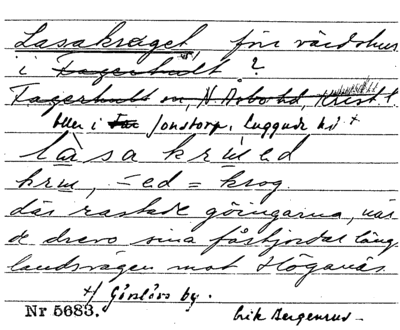 Lasakroget, förr värdshus
i Fagerhult ?
Fagerhult sn, N. Åsbo hd, Krist. l.
eller i Far Jonstorp, Luggude hd +
låsa kr ed
kru, -ed = krog.
där rastade göingarna, när
de drevo sina fårhjordar längs
landsvägen mot Höganäs.
+/ Görslövs by.
Nr 5683. Erik Bergenrus